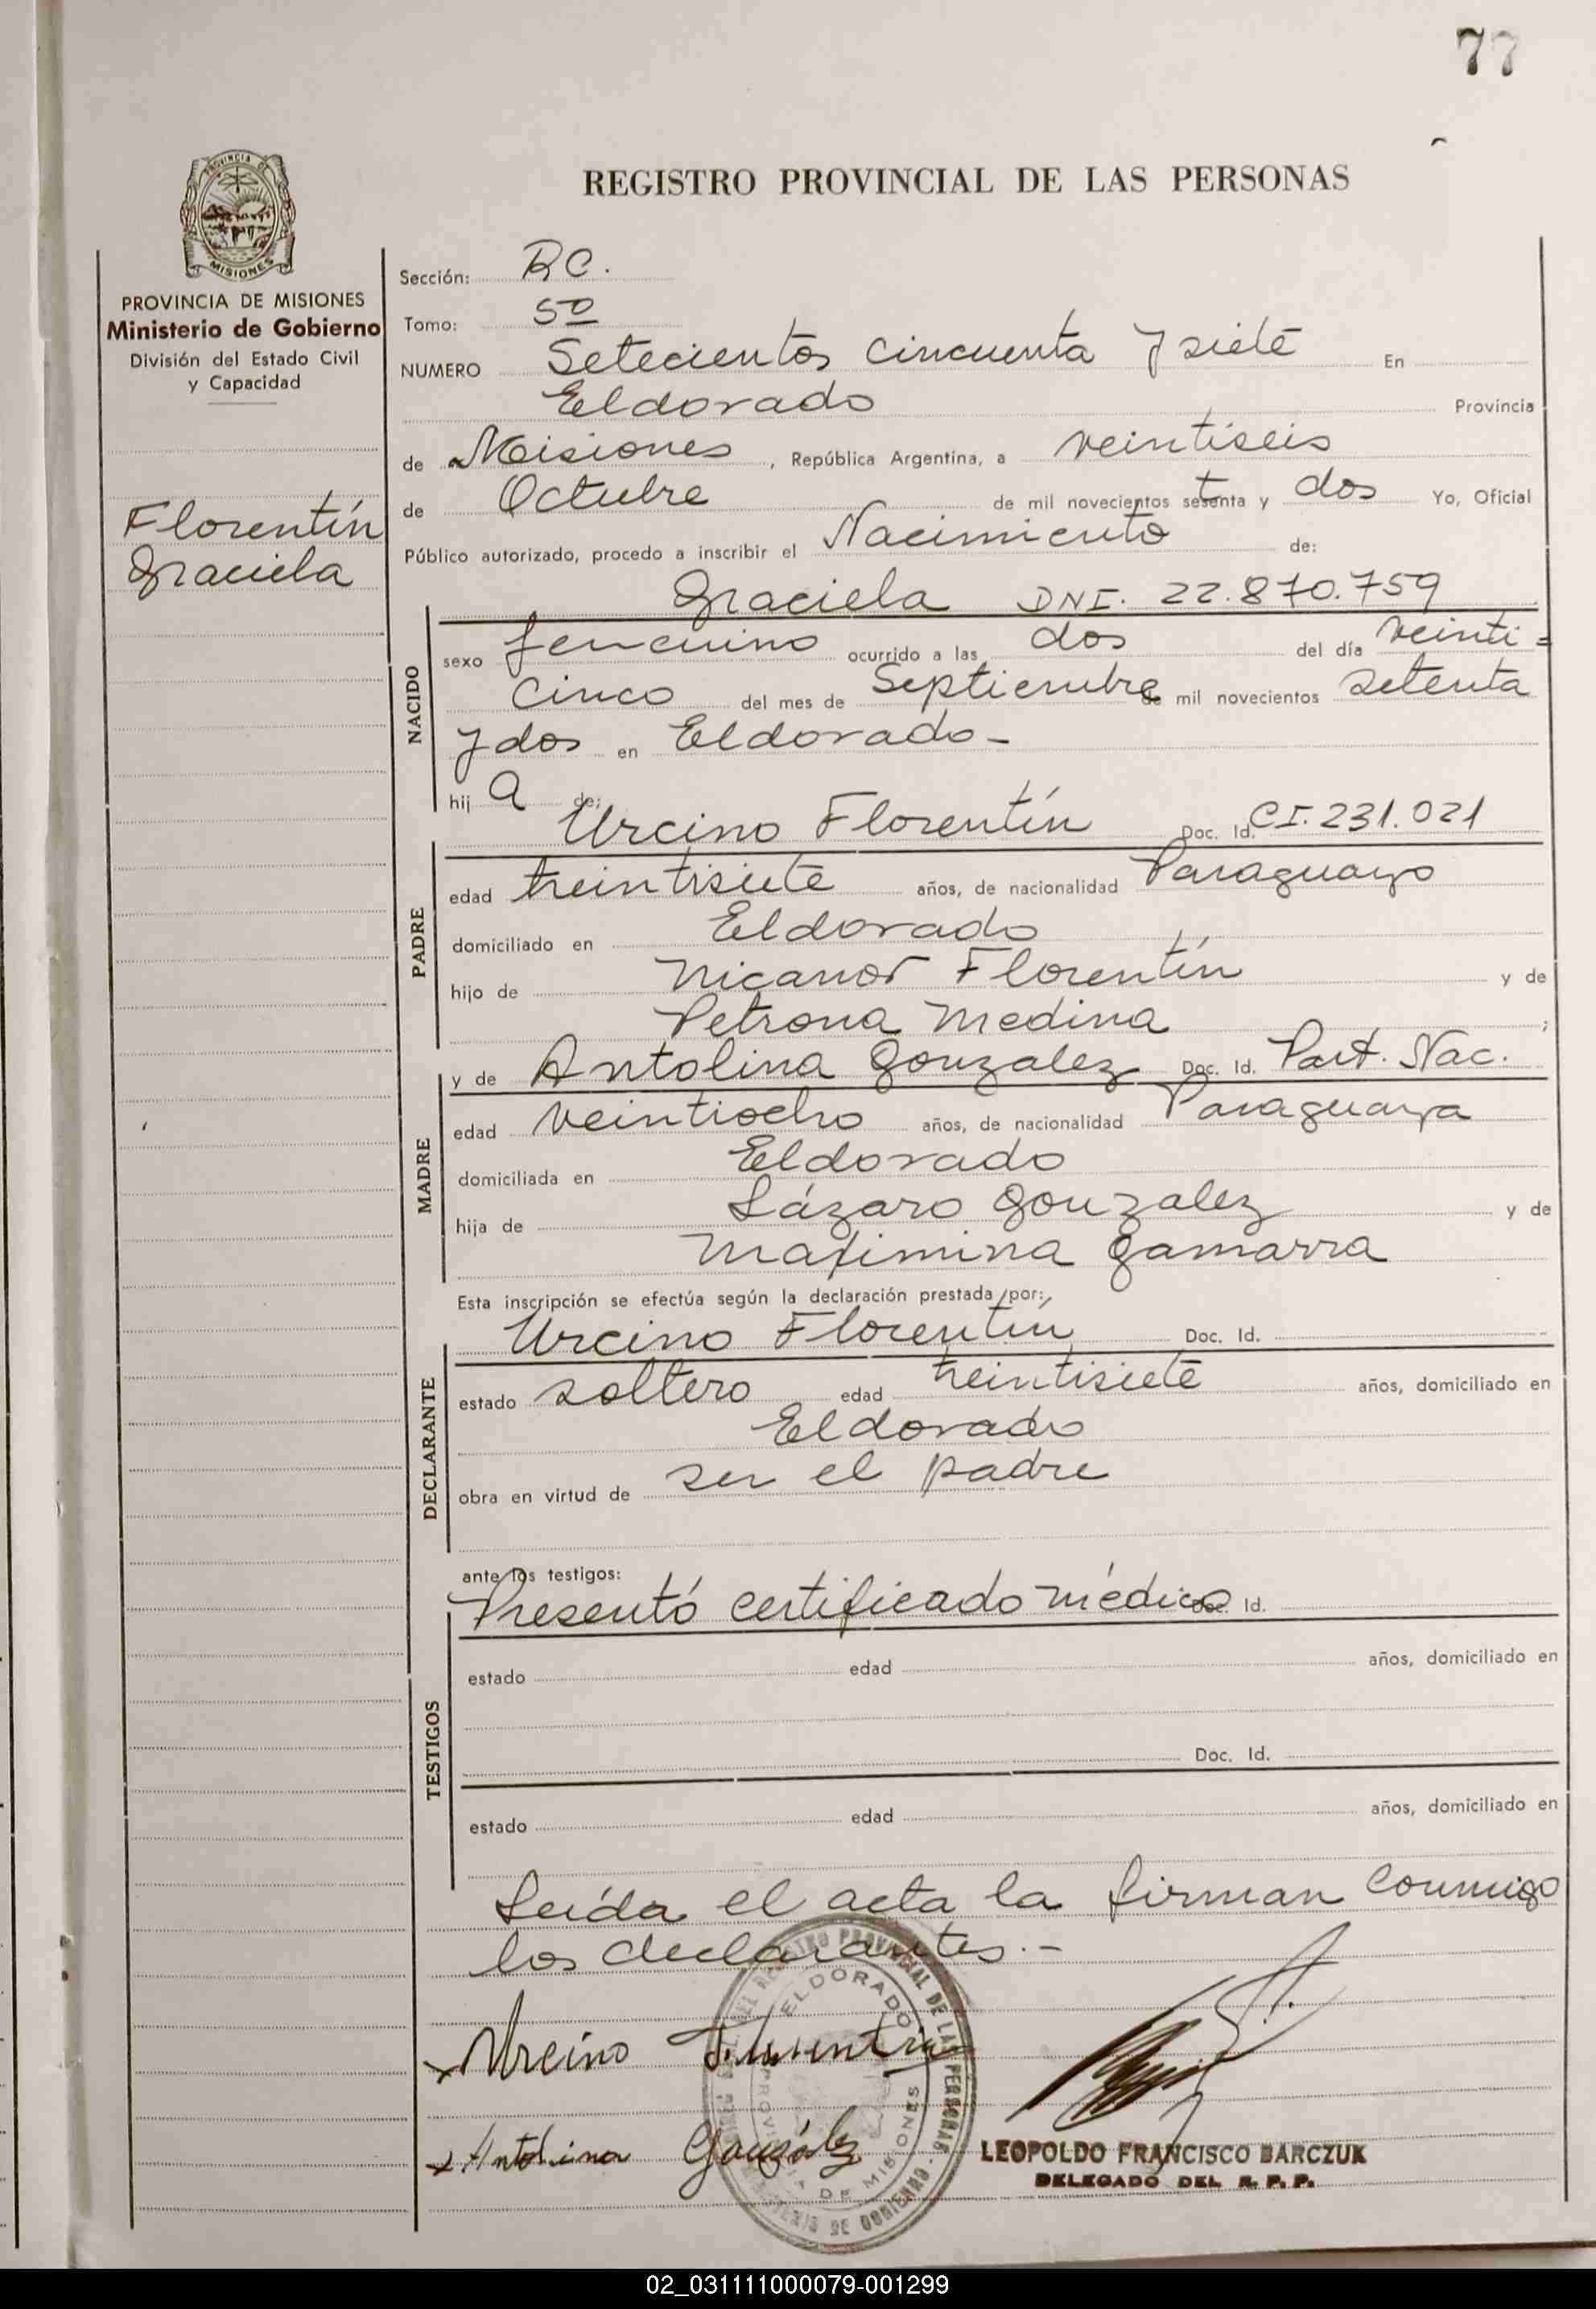 77
REGISTRO PROVINCIAL DE LAS PERSONAS
PROVINCIA DE MISIONES
Ministerio de Gobierno
División del Estado Civil
y Capacidad
Florentín
Graciela
Sección: RC.
Tomo: 5º
NUMERO Setecientos cincuenta y siete En
Eldorado Provincia
de Misiones, República Argentina, a veintiseis
de Octubre de mil novecientos setenta y dos Yo, Oficial
Público autorizado, procedo a inscribir el Nacimiento de:
Graciela DNI. 22.870.759
NACIDO
sexo femenino ocurrido a las dos del día veinti=
cinco del mes de Septiembre de mil novecientos setenta
y dos en Eldorado-
hija de:
Urcino Florentín Doc. Id. CI. 231.021
PADRE
edad treintisiete años, de nacionalidad Paraguayo
domiciliado en Eldorado
hijo de Nicanor Florentín y de
Petrona Medina;
y de Antolina Gonzalez Doc. Id. Part. Nac.
MADRE
edad veintiocho años, de nacionalidad Paraguaya
domiciliada en Eldorado
hija de Lázaro Gonzalez y de
Maximina Gamarra
Esta inscripción se efectúa según la declaración prestada por:
Urcino Florentín Doc. Id.
DECLARANTE
estado soltero edad treintisiete años, domiciliado en
Eldorado
obra en virtud de ser el padre
ante los testigos:
Presentó certificado médico Doc. Id.
TESTIGOS
estado edad años, domiciliado en
Doc. Id.
estado edad años, domiciliado en
Leída el acta la firman conmigo
los declarantes.-
x Urcino Florentin
x Antolina González
ELDORADO
PROVINCIA DE MISIONES
LEOPOLDO FRANCISCO BARCZUK
DELEGADO DEL R. P. P.
02_031111000079-001299